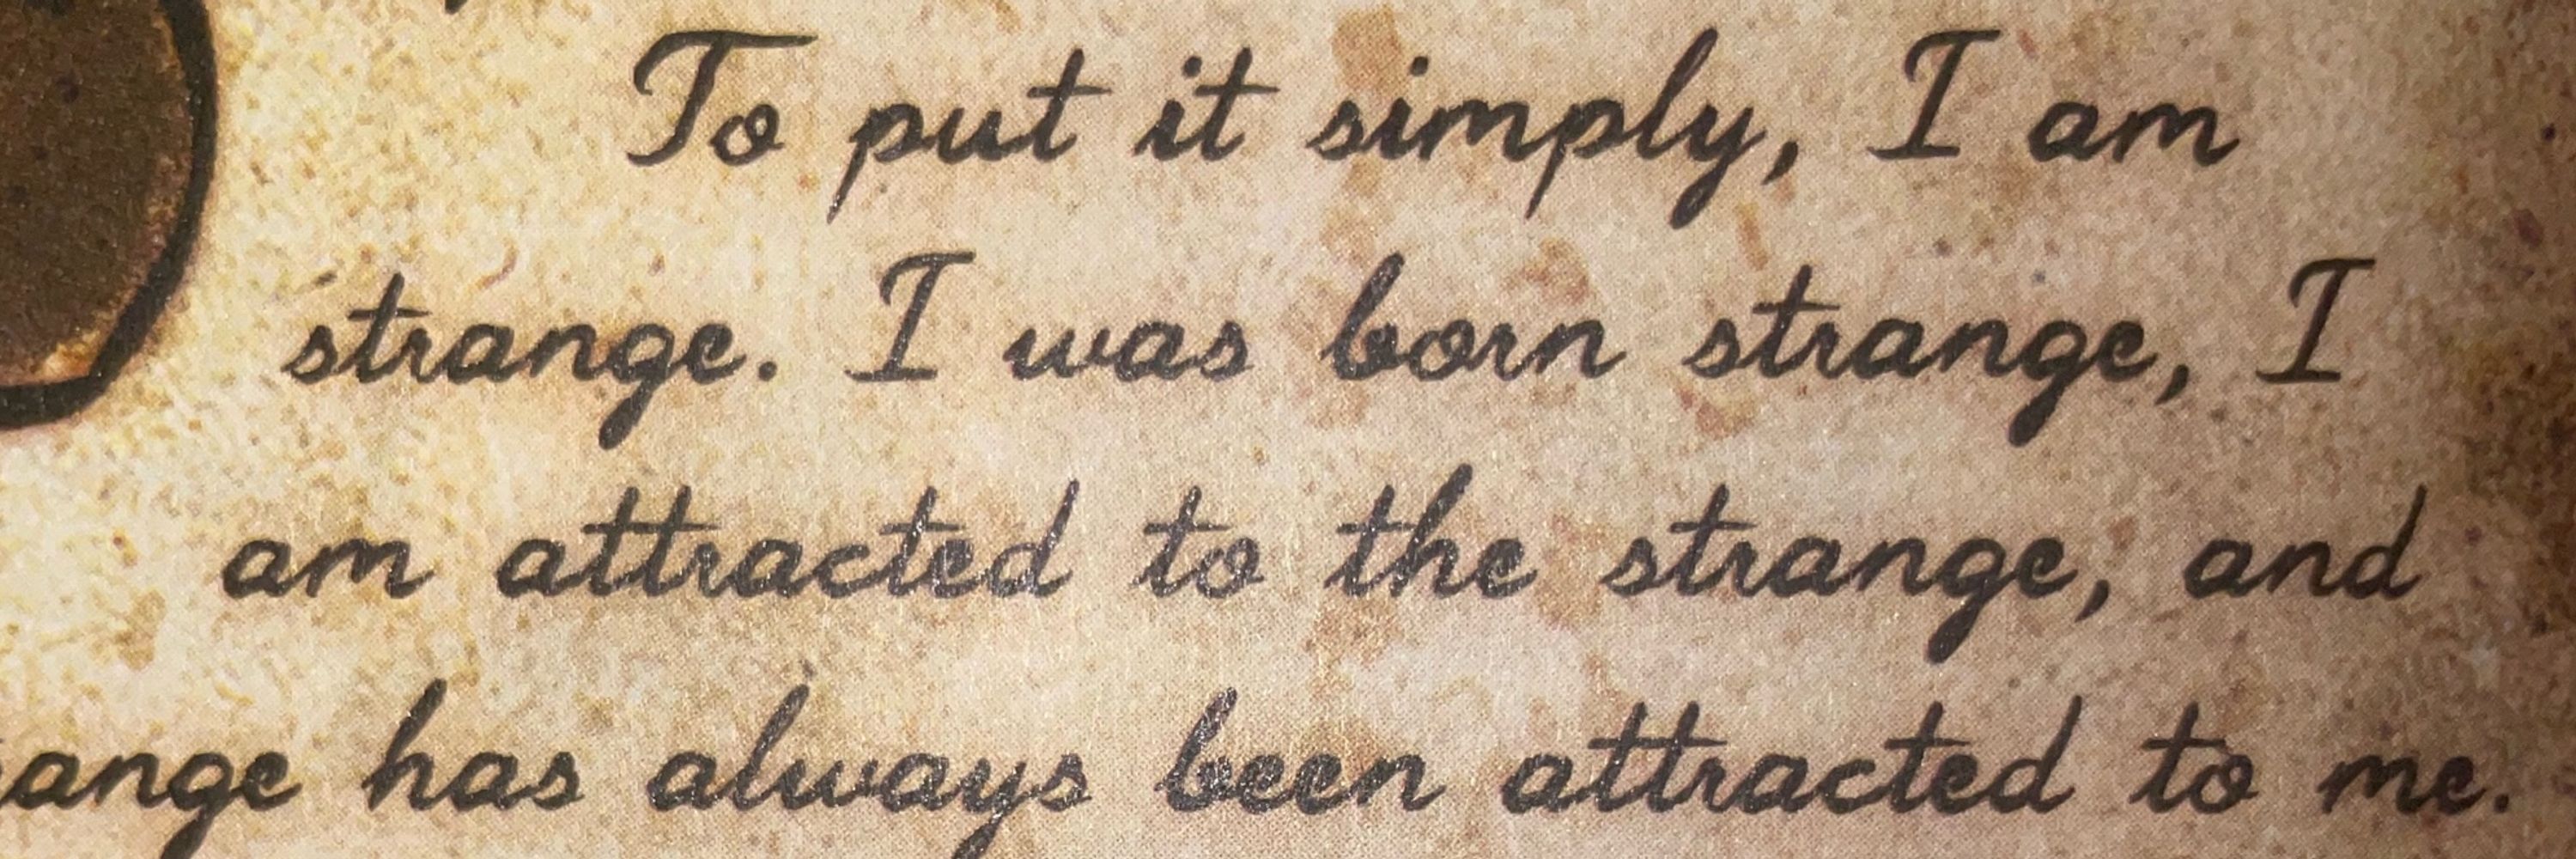 To put it simply, I am
strange. I was born strange, I
am attracted to the strange, and
ange has always been attracted to me.